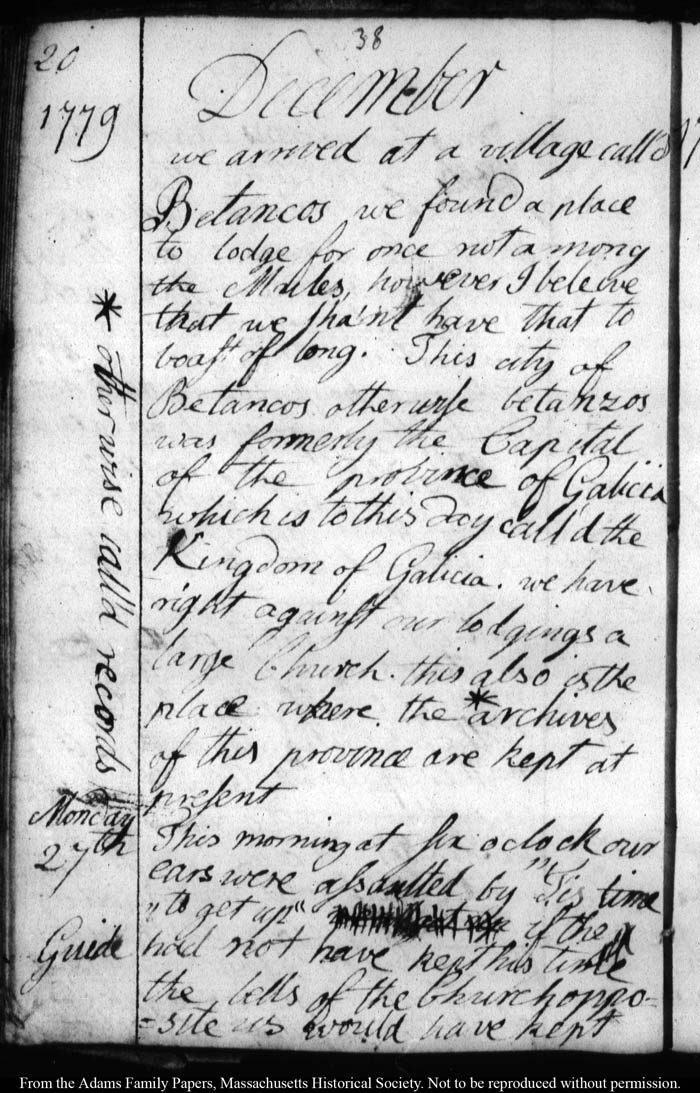 38
20
1779
December
we arrived at a village call'd
Betancos we found a place
to lodge for once not among
the Mules, however I beleive
that we shan't have that to
boast of long. This city of
Betancos otherwise betanzos
was formerly the Capital
of the province of Galicia
which is to this day call'd the
Kingdom of Galicia. we have
right against our lodgings a
large Church. this also is the
place where the *archives
of this province are kept at
present
* otherwise call'd records
Monday
27th
This morning at six o clock our
ears were assaulted by "Tis time
"to get up" if the
Guide
had not have kept his time
the bells of the Church oppo=
=site us would have kept
From the Adams Family Papers, Massachusetts Historical Society. Not to be reproduced without permission.